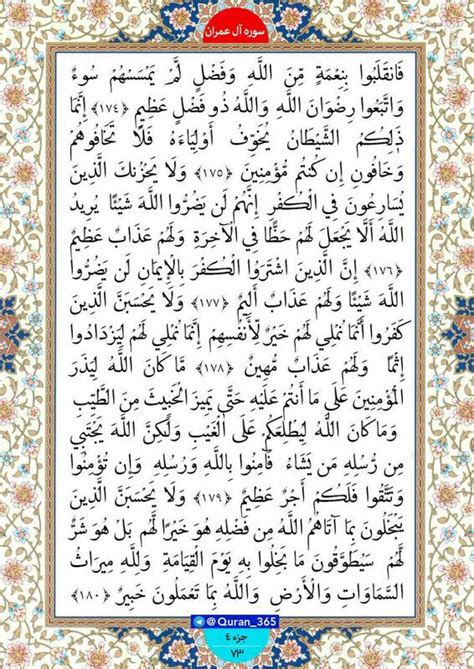 سوره آل عمران
فَانقَلَبُوا بِنِعْمَةٍ مِّنَ اللَّهِ وَفَضْلٍ لَّمْ يَمْسَسْهُمْ سُوءٌ
وَاتَّبَعُوا رِضْوَانَ اللَّهِ وَاللَّهُ ذُو فَضْلٍ عَظِيمٍ ﴿١٧٤﴾ إِنَّمَا
ذَٰلِكُمُ الشَّيْطَانُ يُخَوِّفُ أَوْلِيَاءَهُ فَلَا تَخَافُوهُمْ
وَخَافُونِ إِن كُنتُم مُّؤْمِنِينَ ﴿١٧٥﴾ وَلَا يَحْزُنكَ الَّذِينَ
يُسَارِعُونَ فِي الْكُفْرِ إِنَّهُمْ لَن يَضُرُّوا اللَّهَ شَيْئًا يُرِيدُ
اللَّهُ أَلَّا يَجْعَلَ لَهُمْ حَظًّا فِي الْآخِرَةِ وَلَهُمْ عَذَابٌ عَظِيمٌ
﴿١٧٦﴾ إِنَّ الَّذِينَ اشْتَرَوُا الْكُفْرَ بِالْإِيمَانِ لَن يَضُرُّوا
اللَّهَ شَيْئًا وَلَهُمْ عَذَابٌ أَلِيمٌ ﴿١٧٧﴾ وَلَا يَحْسَبَنَّ الَّذِينَ
كَفَرُوا أَنَّمَا نُمْلِي لَهُمْ خَيْرٌ لِّأَنفُسِهِمْ إِنَّمَا نُمْلِي لَهُمْ لِيَزْدَادُوا
إِثْمًا وَلَهُمْ عَذَابٌ مُّهِينٌ ﴿١٧٨﴾ مَّا كَانَ اللَّهُ لِيَذَرَ
الْمُؤْمِنِينَ عَلَىٰ مَا أَنتُمْ عَلَيْهِ حَتَّىٰ يَمِيزَ الْخَبِيثَ مِنَ الطَّيِّبِ
وَمَا كَانَ اللَّهُ لِيُطْلِعَكُمْ عَلَى الْغَيْبِ وَلَٰكِنَّ اللَّهَ يَجْتَبِي
مِن رُّسُلِهِ مَن يَشَاءُ فَآمِنُوا بِاللَّهِ وَرُسُلِهِ وَإِن تُؤْمِنُوا
وَتَتَّقُوا فَلَكُمْ أَجْرٌ عَظِيمٌ ﴿١٧٩﴾ وَلَا يَحْسَبَنَّ الَّذِينَ
يَبْخَلُونَ بِمَا آتَاهُمُ اللَّهُ مِن فَضْلِهِ هُوَ خَيْرًا لَّهُم بَلْ هُوَ شَرٌّ
لَّهُمْ سَيُطَوَّقُونَ مَا بَخِلُوا بِهِ يَوْمَ الْقِيَامَةِ وَلِلَّهِ مِيرَاثُ
السَّمَاوَاتِ وَالْأَرْضِ وَاللَّهُ بِمَا تَعْمَلُونَ خَبِيرٌ ﴿١٨٠﴾
@Quran_365
جزء ٤
٧٣